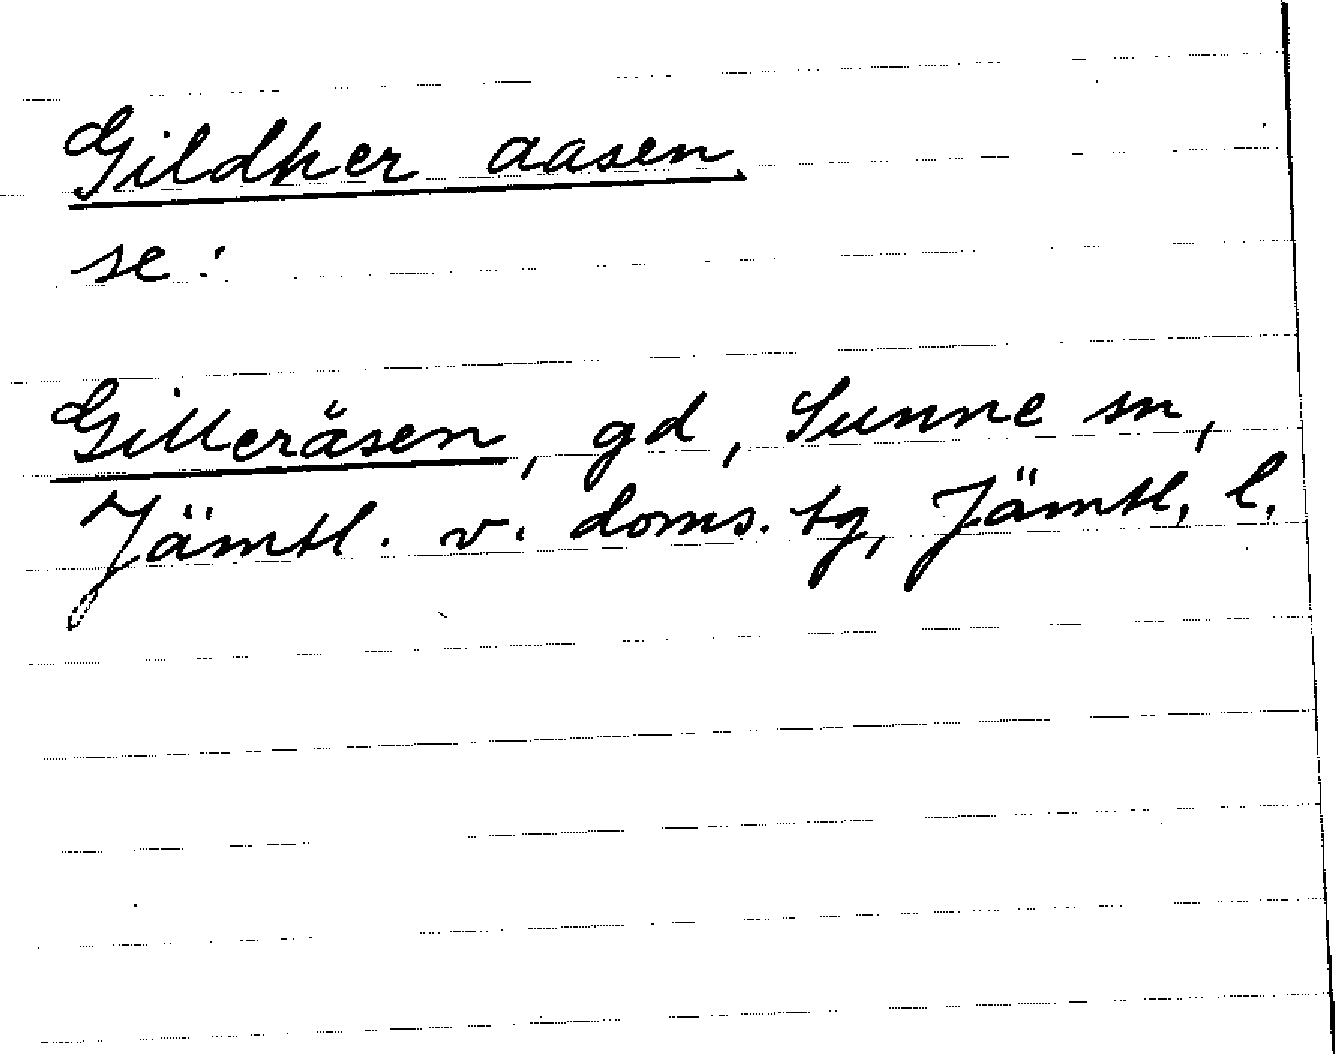 Gildher aasen
se:
Gilleråsen, gd, Sunne sn,
Jämtl. v. doms. tg, Jämtl. l.